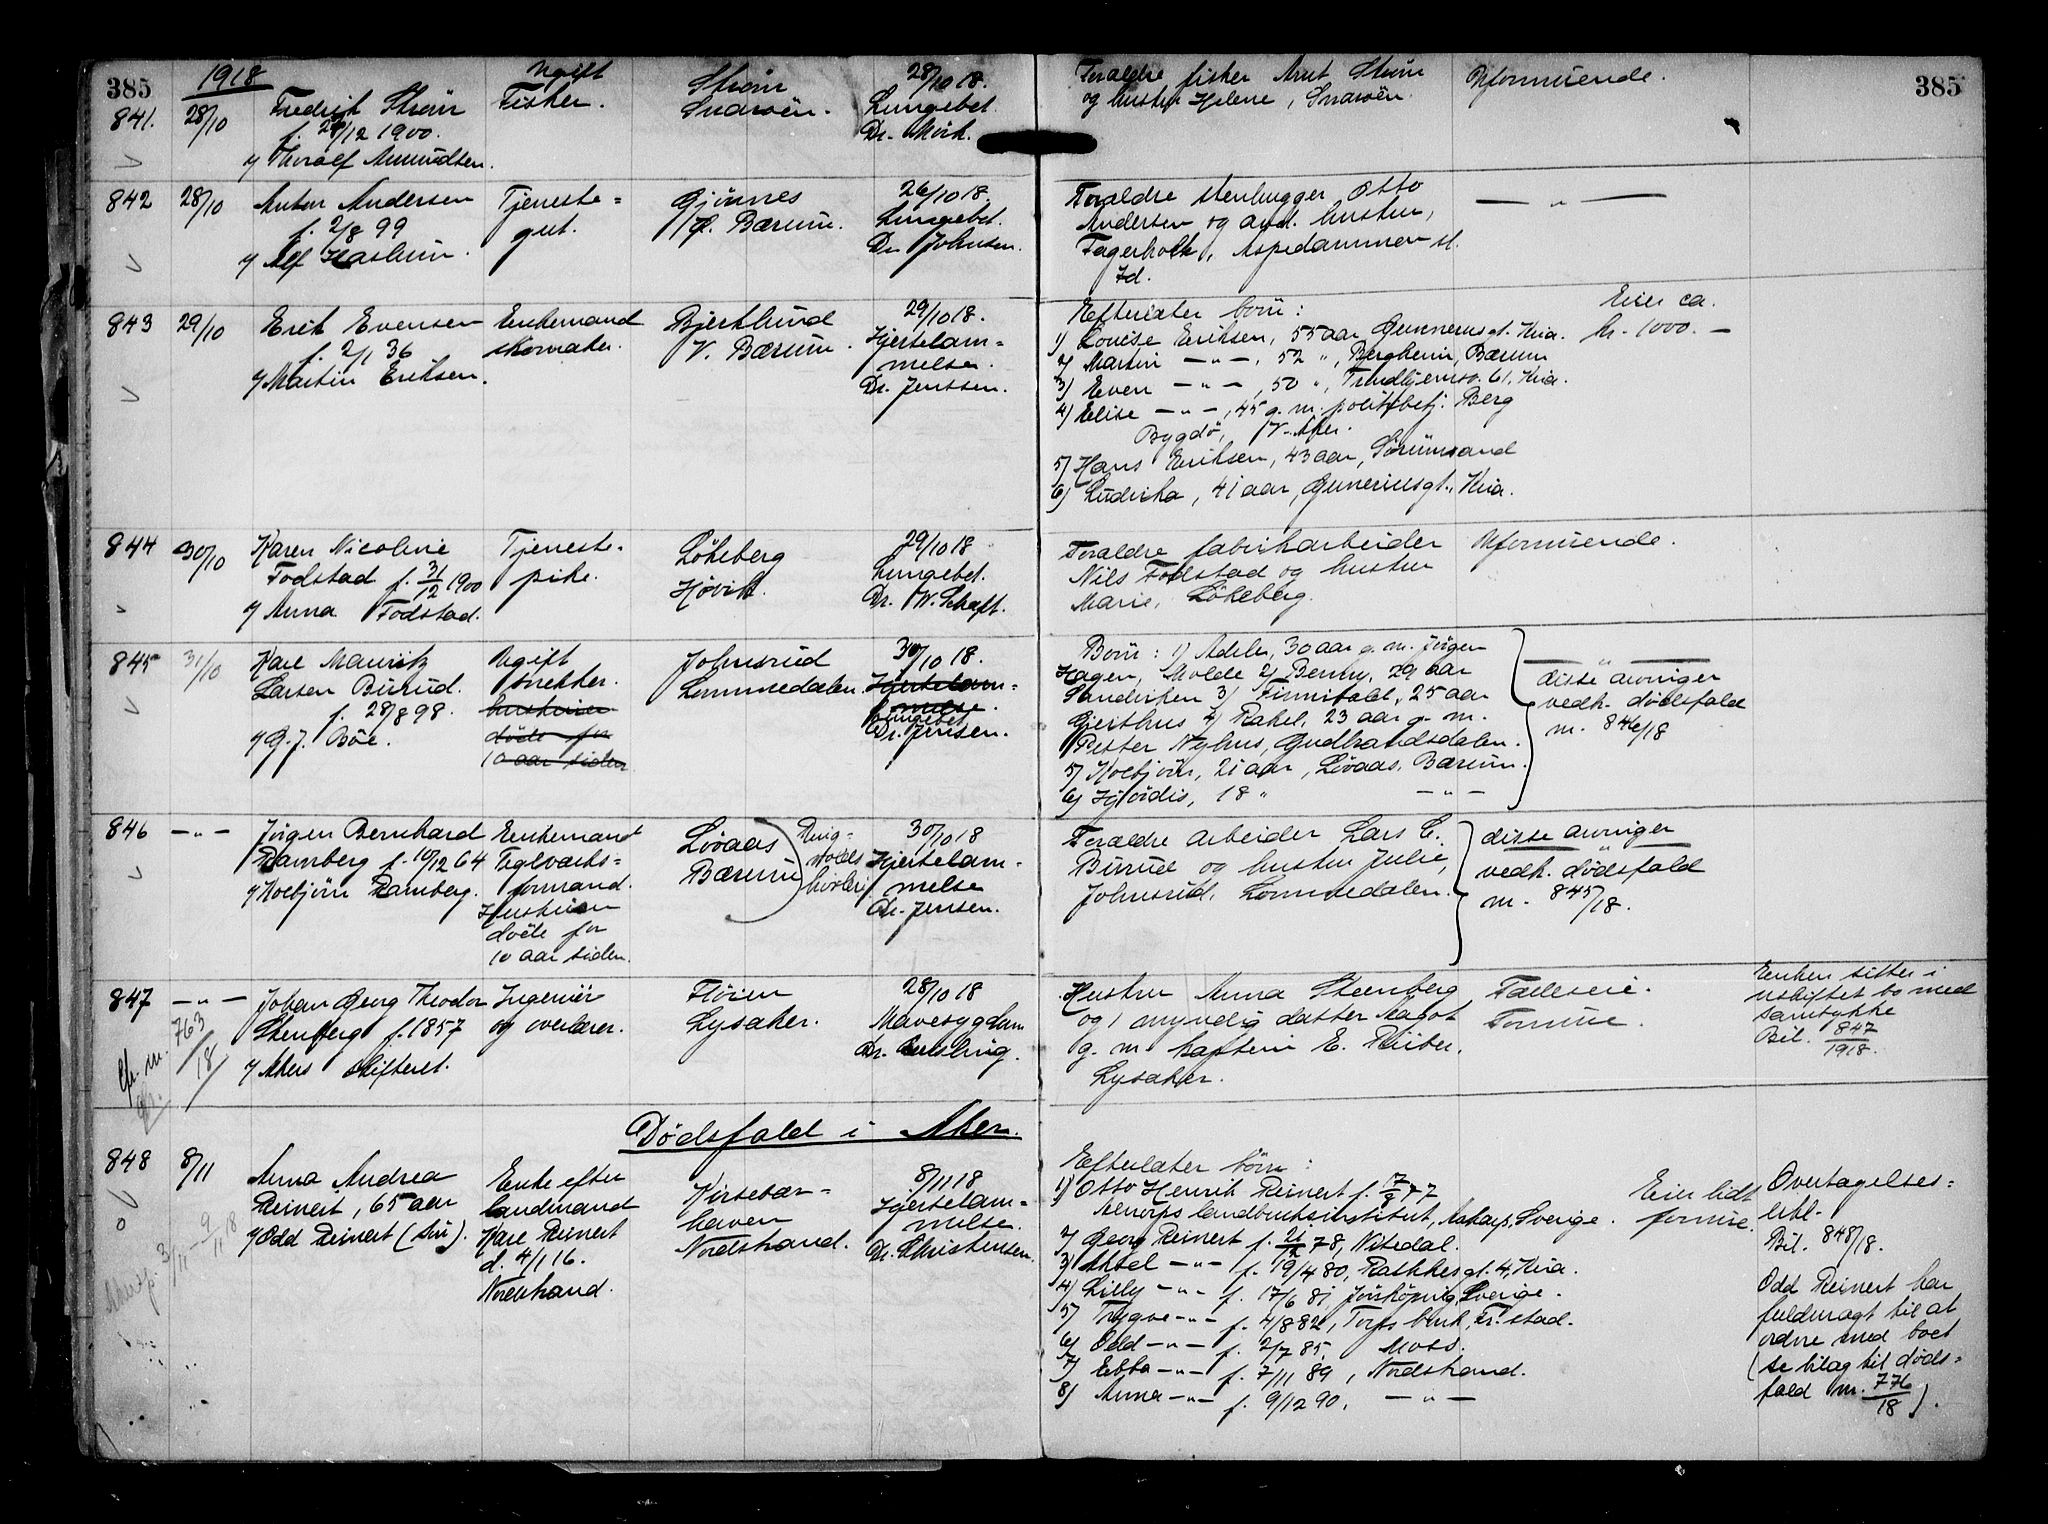 385
385
1918
841.
28/10
Fredrik Strøm
f. 29/12 1900.
Ugift
Fisker.
Strøm
Snarøen.
28/10 18.
Lungebet.
Dr. Mørk.
Foreldre fisker Arnt Strøm
og hustru Helene, Snarøen.
Uformuende.
842
28/10
Anton Andersen
f. 2/8 99
Tjeneste=
gut.
Gjønnes
Ø. Bærum.
26/10 18.
Lungebet.
Dr. Johnsen.
Foreldre stenhugger Otto
Andersen og hustru,
Aspedammen st.
Id.
— „ —
843
29/10
Erik Evensen
f. 2/1 36
v/ Martin Eriksen.
Enkemand
skomaker.
Bjerklund
V. Bærum.
29/10 18.
Hjertelam=
melse.
Dr. Jenssen.
Efterlater børn:
1) Louise Eriksen, 55 aar, Gunnerusgt. Kria.
2) Martin — „ —, 52 „, Bergheim, Bærum
3) Even — „ —, 50 „, Trondhjemsv. 61, Kria.
4) Elise — „ —, 45 g. m. politibetj. Berg
Bygdø, V. Aker.
5) Hans Eriksen, 43 aar, Sørumsand
6) Ludvika, 41 aar, Guneriusgt., Kria.
Eier ca.
kr. 1000. —
844
30/10
Karen Nicoline
Fodstad f. 31/12 1900
v/ Anna Fodstad.
Tjeneste=
pike.
Løkeberg
Høvik.
29/10 18
Lungebet.
Dr. W. Schaft.
Foreldre fabrikarbeider
Nils Fodstad og hustru
Marie, Løkeberg.
Uformuende.
845
31/10
Karl Mauritz
Larsen Burud.
f. 28/8 98.
v/ G. J. Bøe.
Ugift
snekker.
hustruen
døde for
10 aar siden
Johnsrud
Lommedalen
30/10 18.
Hjertelam=
melse.
Lungebet.
Dr. Jensen.
Børn: 1) Adele, 30 aar g. m. Jørgen
Hagen, Molde 2) Benny, 29 aar
Sandviken 3) 25 aar
Gjerthus 4) Rakel, 23 aar g. m.
Petter Nyhus, Gudbrandsdalen.
5) Kolbjørn, 21 aar, Løvaas, Bærum.
6) Hjørdis, 18 „ — „ —
— „ —
disse arvinger
vedk. dødsfald
nr. 846/18
846
— „ —
Jørgen Bernhard
Ramberg f. 10/12 64
v/ Kolbjørn Ramberg.
Enkemand
Teglverks=
formand.
Hustruen
døde for
10 aar siden.
Løvaas
Bærum
30/10 18
Hjertelam=
melse
Dr. Jensen.
Foreldre arbeider Lars C.
Burud og hustru Julie,
Johnsrud, Lommedalen.
disse arvinger
vedk. dødsfald
nr. 845/18.
847
— „ —
cfr. nr. 763/18
Johan Georg Theodor
Stenberg f. 1857
v/ Akers skifteret.
Ingeniør
og overlærer.
Fløien
Lysaker.
28/10 18
Mavesygdom
Dr.
Hustru Anna Steenberg
og 1 myndig datter Aagot
g. m. kaptein E. Rieber,
Lysaker.
Fælleseie.
Formue.
Enken sitter i
uskiftet bo med
samtykke
Bil. 847/1918.
Dødsfald i Aker.
848
8/11
Anna Andrea
Reinert, 65 aar
v/ Odd Reinert (søn).
Enke efter
landmand
Karl Reinert
d. 4/1 16.
Nordstrand.
Kirsebær=
haven
Nordstrand.
8/11 18
Hjertelam=
melse.
Dr. Christensen
Efterlater børn:
1) Otto Henrik Reinert f. 17/8 77
Alnarps landbruksinstitut, Åkarp, Sverige.
2) Georg Reinert f. 21/12 78, Nitedal.
3) Aksel — „ — f. 19/4 80, Rathkesgt. 4, Kria.
4) Lilly — „ — f. 17/6 81, Jönköping, Sverige.
5) Trygve — „ — f. 4/8 82, Torps bruk, Fr.stad.
6) Odd — „ — f. 2/7 85, Moss.
7) Ebba — „ — f. 7/11 89, Nordstrand.
8) Anna — „ — f. 9/12 90, — „ —
Eier lidt
formue.
Overtagelses=
erkl.
Bil. 848/18.
Odd Reinert har
fuldmagt til at
ordne med boet
(se bilag til døds=
fald nr. 776/18).